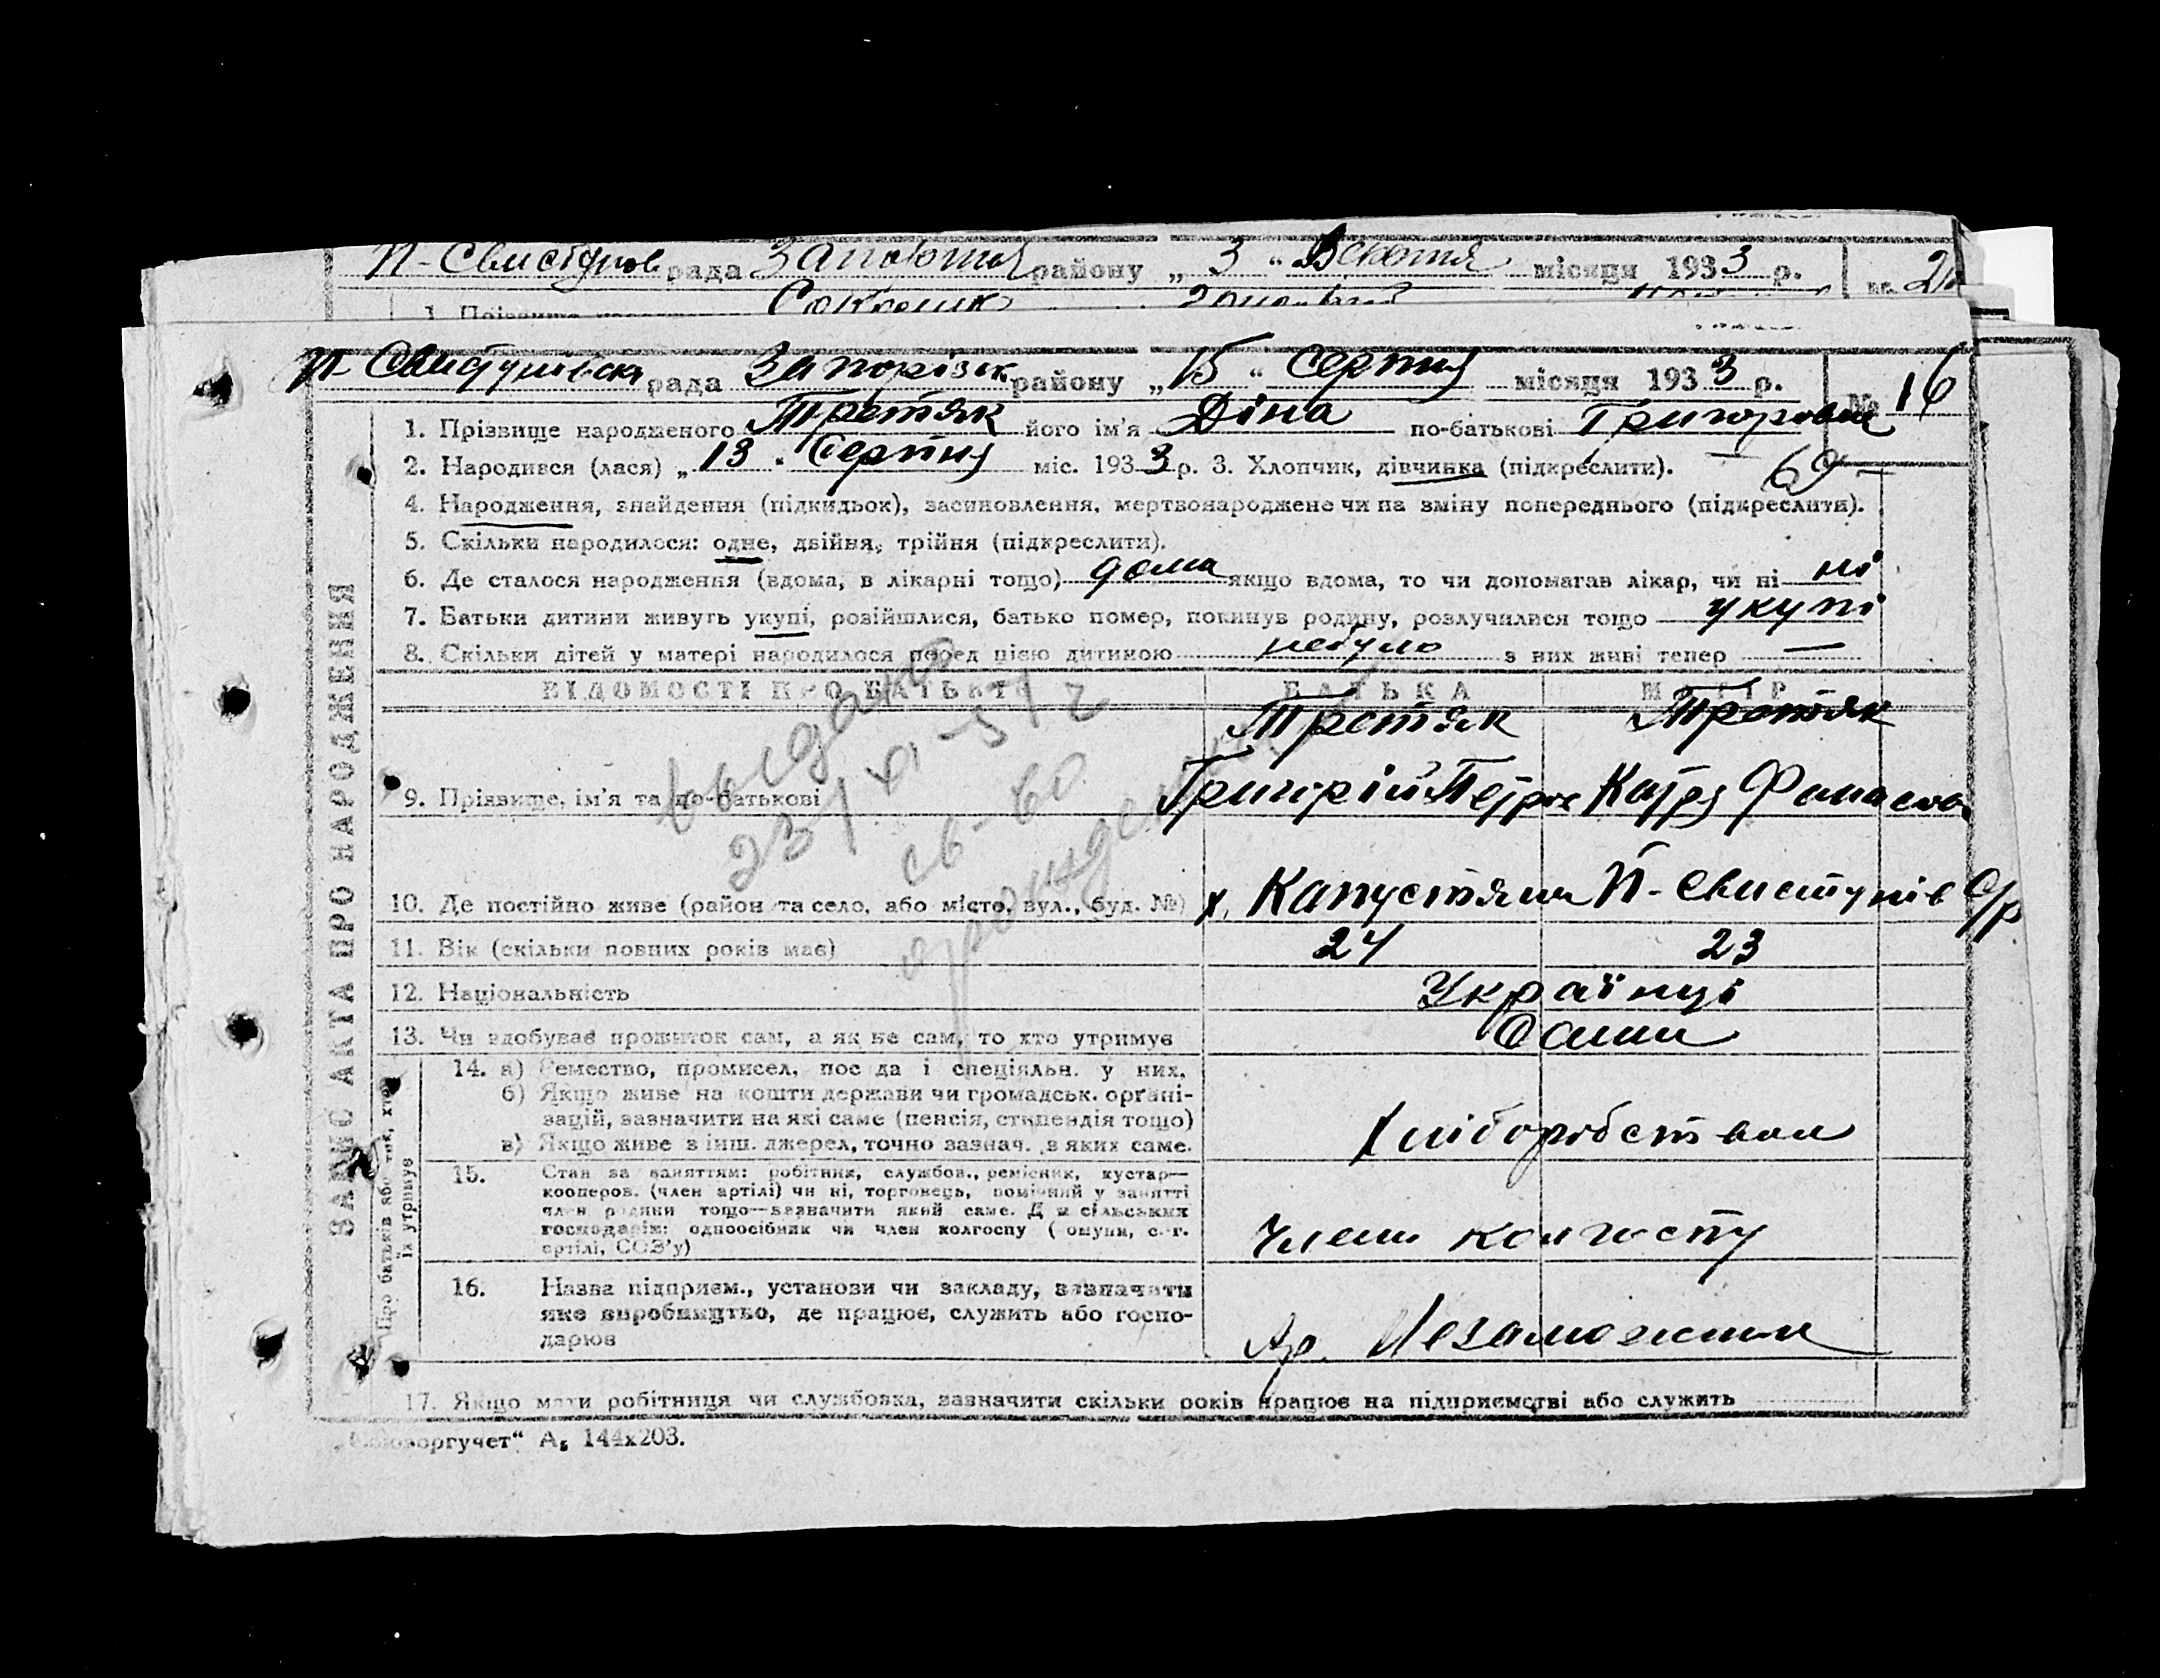 П-Свистунов рада Запоріжжя району „ 3 “ Жовтня місяця 1933 р. № 2
1. Прізвище
П-Свистунівська рада Запорізьк. району „15“ Серпня місяця 1933 р. № 16
1. Прізвище народженого Третяк його ім'я Діна по-батькові Григоровна
2. Народився (лася) „13“ Серпня міс. 1933 р. 3. Хлопчик, дівчинка (підкреслити). 69
4. Народження, знайдення (підкидьок), засиновлення, мертвонароджене чи на зміну попереднього (підкреслити).
5. Скільки народилося: одне, двійня, трійня (підкреслити).
6. Де сталося народження (вдома, в лікарні тощо) дома якщо вдома, то чи допомагав лікар, чи ні ні
7. Батьки дитини живуть укупі, розійшлися, батько помер, покинув родину, розлучилися тощо укупі
8. Скільки дітей у матері народилося перед цією дитиною небуло з них живі тепер —
ВІДОМОСТІ ПРО БАТЬКІВ БАТЬКА МАТІР
Третяк Третяк
9. Прізвище, ім'я та по-батькові Григорій Петров Катря Фанасова
10. Де постійно живе (район та село, або місто, вул., буд. №) х. Капустяни П-Свистунів С/р
11. Вік (скільки повних років має) 24 23
12. Національність Українці
13. Чи здобуває прожиток сам, а як не сам, то хто утримує Сами
14. а) Ремество, промисел, посада і спеціяльн. у них.
б) Якщо живе на кошти держави чи громадськ. органі-
зацій, зазначити на які саме (пенсія, стипендія тощо)
в) Якщо живе з інш. джерел, точно зазнач. з яких саме.
Хліборобством
15. Стан за заняттям: робітник, службов., ремісник, кустар—
кооперов. (член артілі) чи ні, торговець, помічний у занятті
член родини тощо—зазначити який саме. Для сільських
господарів: одноосібник чи член колгоспу (комуни, с.-г.
артілі, СОЗ'у)
Члени колгоспу
16. Назва підприєм., установи чи закладу, зазначити
яке виробництво, де працює, служить або госпо-
дарює
Ар. Незаможник
17. Якщо мати робітниця чи службовка, зазначити скільки років працює на підприємстві або служить
ЗАПИС АКТА ПРО НАРОДЖЕННЯ
Про батьків або тих, хто
їх утримує
выдано
23/XI-51 г
св-во
о рождении
„Союзоргучет“ А₅ 144х203.